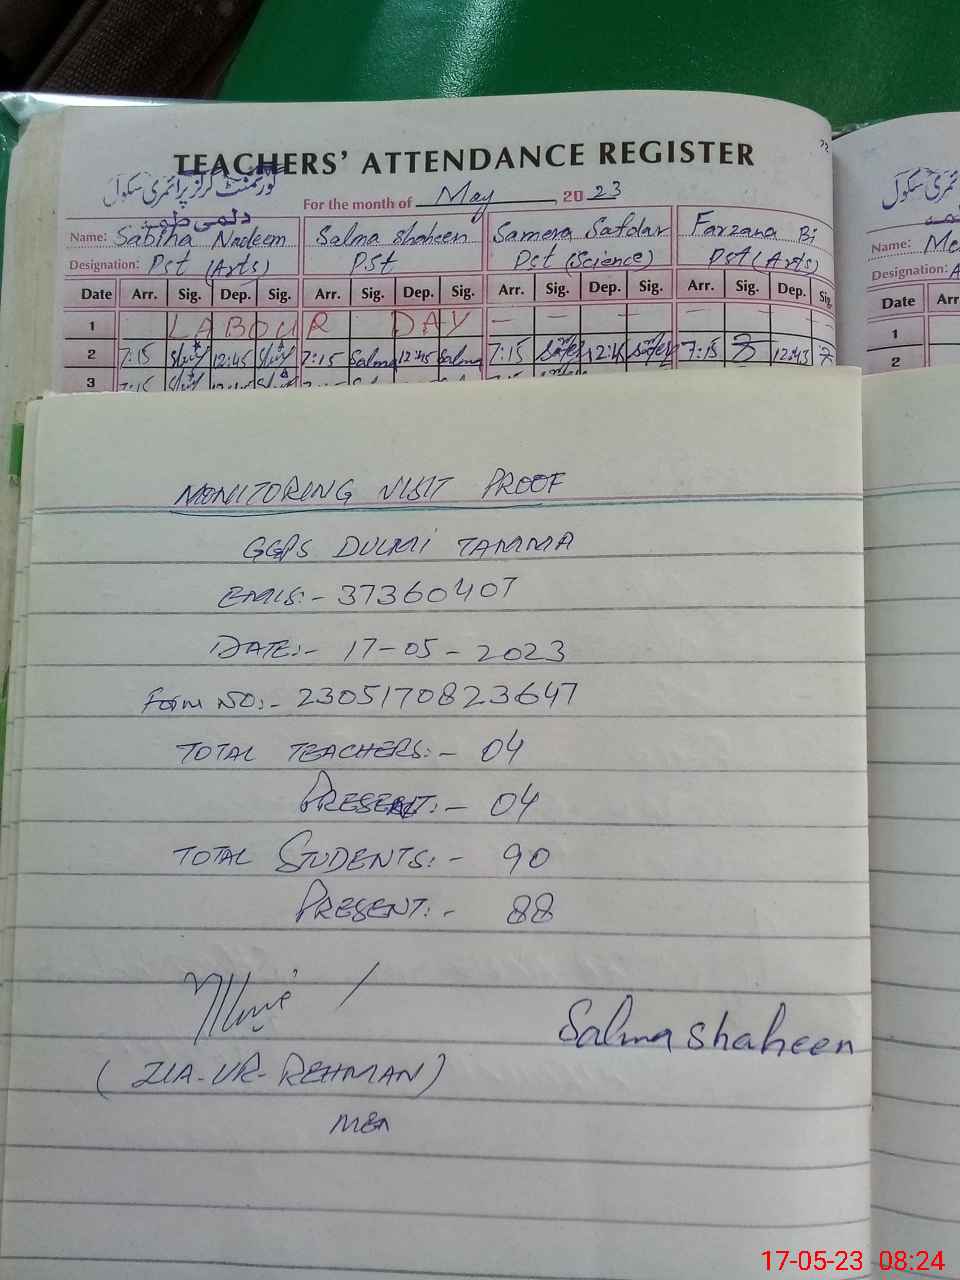 TEACHERS' ATTENDANCE REGISTER
گورنمنٹ گرلز پرائمری سکول
دلمی طمہ
For the month of May, 2023
Name: Sabiha Nadeem Salma Shaheen Samera Safdar Farzana Bi
Designation: Pst (Arts) PST Pst (Science) PST (Arts)
Date Arr. Sig. Dep. Sig. Arr. Sig. Dep. Sig. Arr. Sig. Dep. Sig. Arr. Sig. Dep. Sig.
1 LABOUR DAY
2 7:15 12:45 7:15 Salma 12:45 Salma 7:15 12:45 7:15 12:43
3 7:15
پرائمری سکول
Name: Me
Designation: A
Date Arr
1
2
MONITORING VISIT PROOF
GGPS DULMI TAMMA
EMIS:- 37360407
DATE:- 17-05-2023
Form NO:- 2305170823647
TOTAL TEACHERS:- 04
PRESENT:- 04
TOTAL STUDENTS:- 90
PRESENT:- 88
Salma shaheen
(ZIA-UR-REHMAN)
MEA
17-05-23 08:24